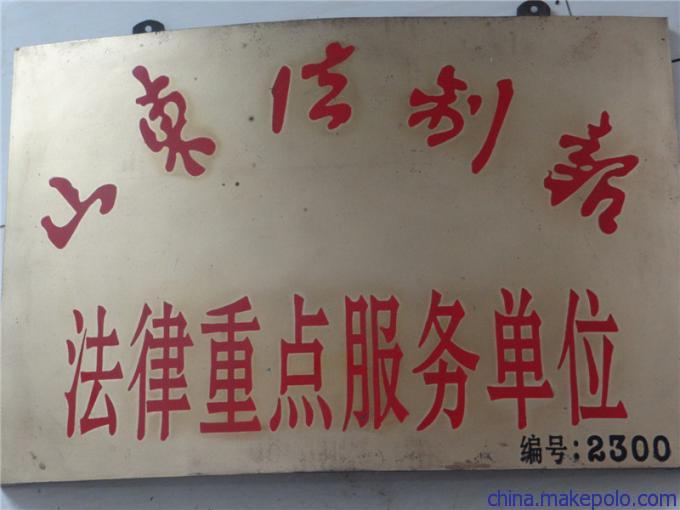 山東法制報
法律重点服务单位
编号:2300
china.makepolo.com